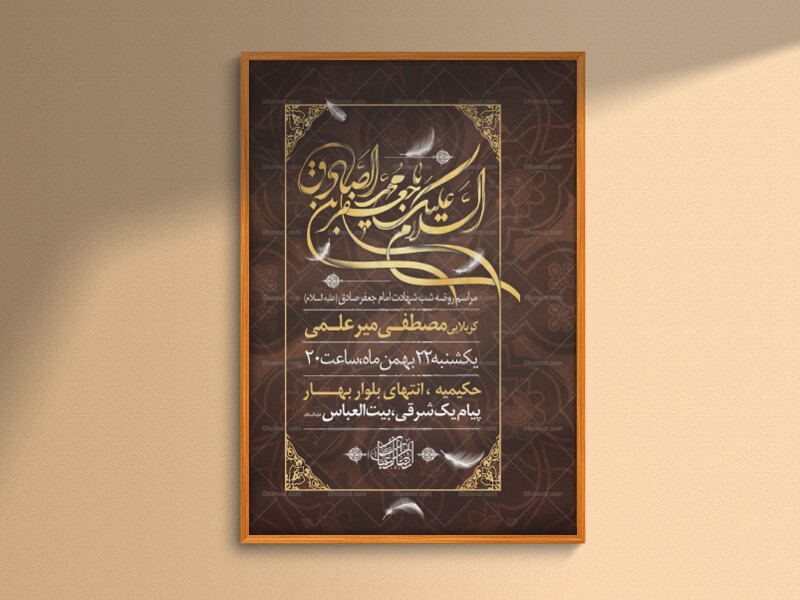 السلام علیک یا جعفر بن محمد الصادق
مراسم روضه شب شهادت امام جعفر صادق (علیه السلام)
کربلایی مصطفی میرعلمی
یکشنبه ۲۲ بهمن ماه، ساعت ۲۰
حکیمیه ، انتهای بلوار بهار
پیام یک شرقی، بیت العباس علیه السلام